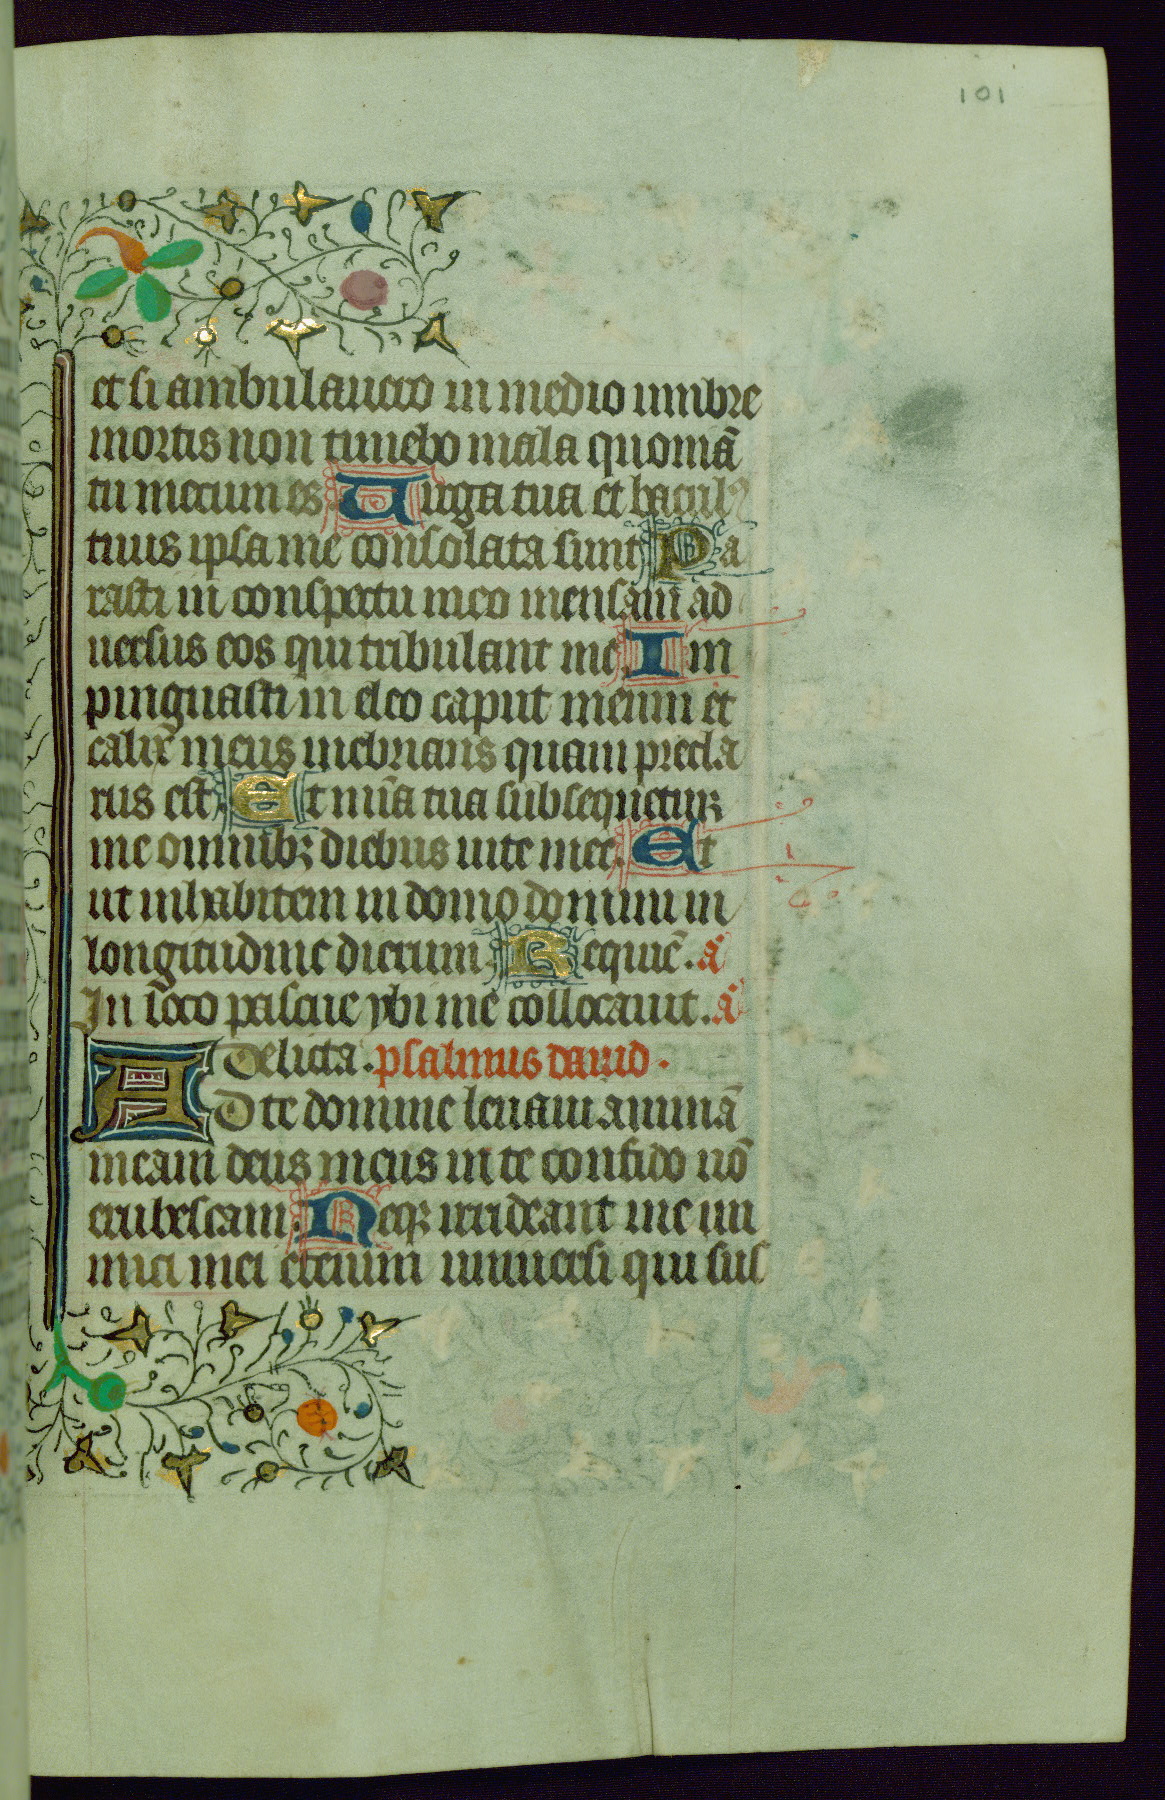 101
et si ambulauero in medio umbre
mortis non timebo mala quoniā
tu mecum es. Uirga tua et baculꝰ
tuus ipsa me consolata sunt. Pa
rasti in conspectu meo mensam ad
uersus eos qui tribulant me. Im
pinguasti in oleo caput meum et
calix meus inebrians quam precla
rus est. Et mīa tua subsequetur
me omnibꝫ diebus uite mee. Et
ut inhabitem in domo domini in
longitudine dierum. Requiē. ā
In loco pascue ybi me collocauit. ā
Delicta. psalmus dauid.
AD te domine leuaui animā
meam deus meus in te confido nō
erubescam. Neqꝫ irrideant me ini
mici mei etenim uniuersi qui sus